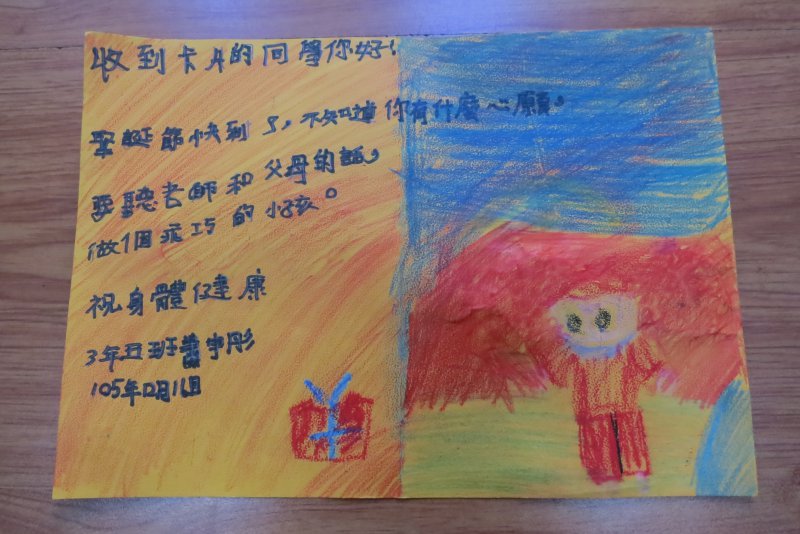 收到卡片的同學你好!
聖誕節快到了,不知道你有什麼心願。
要聽老師和父母的話,
做個乖巧的小孩。
祝身體健康
3年五班 宇彤
105年12月1日